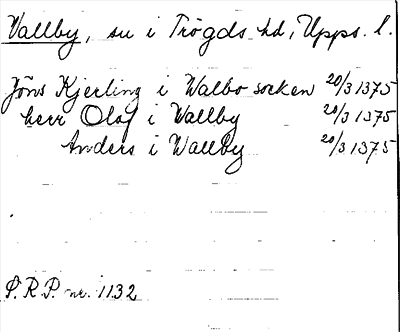 Vallby, sn i Trögds hd, Upps. l.
Jöns Kjerling i Walbo socken 20/3 1375
herr Olof i Wallby 20/3 1375
Anders i Wallby 20/3 1375
S.R.P. nr. 1132